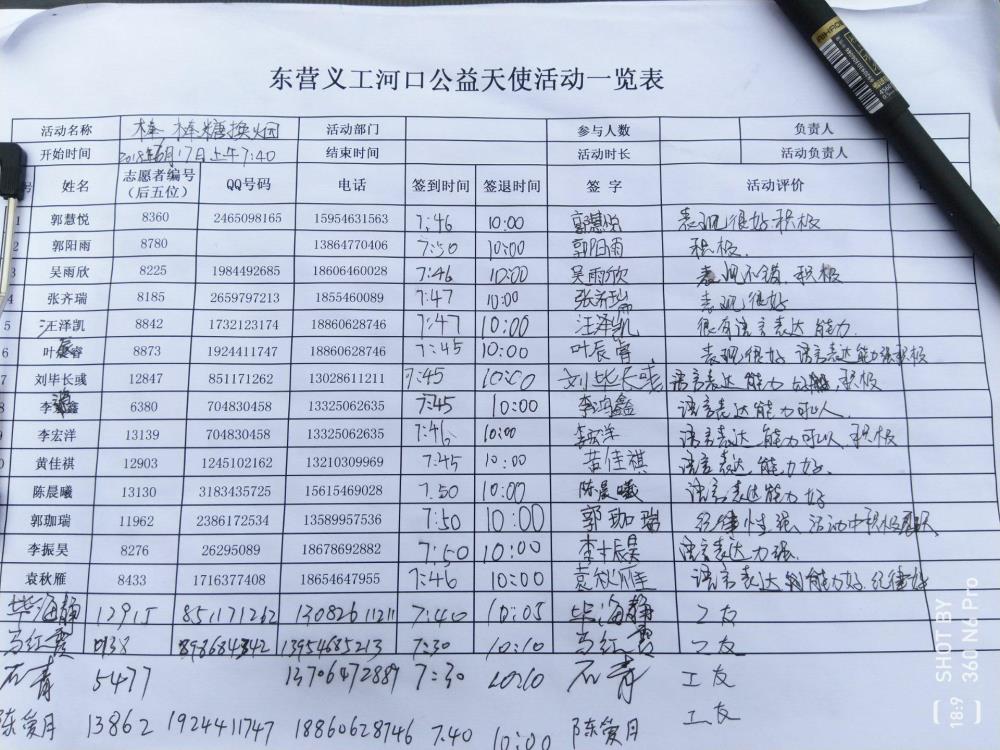 东营义工河口公益天使活动一览表
活动名称 棒棒糖换烟 活动部门 参与人数 负责人
开始时间 2018年6月17日上午7:40 结束时间 活动时长 活动负责人
号 姓名 志愿者编号（后五位） QQ号码 电话 签到时间 签退时间 签字 活动评价
1 郭慧悦 8360 2465098165 15954631563 7:46 10:00 郭慧悦 表现很好.积极
2 郭阳雨 8780 13864770406 7:50 10:00 郭阳雨 积极.
3 吴雨欣 8225 1984492685 18606460028 7:46 10:00 吴雨欣 表现不错.积极
4 张齐瑞 8185 2659797213 1855460089 7:47 10:00 张齐瑞 表现很好
5 汪泽凯 8842 1732123174 18860628746 7:47 10:00 汪泽凯 很有语言表达能力.
6 叶辰睿 8873 1924411747 18860628746 7:45 10:00 叶辰睿 表现很好 语言表达能力强积极
7 刘毕长彧 12847 851171262 13028611211 7:45 10:00 刘毕长彧 语言表达能力好 积极
8 李鸿鑫 6380 704830458 13325062635 7:45 10:00 李鸿鑫 语言表达能力可以.
9 李宏洋 13139 704830458 13325062635 7:46 10:00 李宏洋 语言表达能力可以.积极
0 黄佳祺 12903 1245102162 13210309969 7:45 10:00 黄佳祺 语言表达能力好.
陈晨曦 13130 3183435725 15615469028 7.50 10:00 陈晨曦 语言表达能力好
郭珈瑞 11962 2386172534 13589957536 7:50 10:00 郭珈瑞 纪律性强、活动中积极
李振昊 8276 26295089 18678692882 7:50 10:00 李振昊 语言表达力强.
袁秋雁 8433 1716377408 18654647955 7:46 10:00 袁秋雁 语言表达能力好.纪律好
毕海静 12915 851171262 13082611211 7:40 10:05 毕海静 工友
马红霞 13954685213 7:30 10:10 马红霞 工友
石青 5477 13706472889 7:30 10:10 石青 工友
陈爱月 13862 1924411747 18860628746 7.40 10:00 陈爱月 工友
SHOT BY
360 N6 Pro
18:9